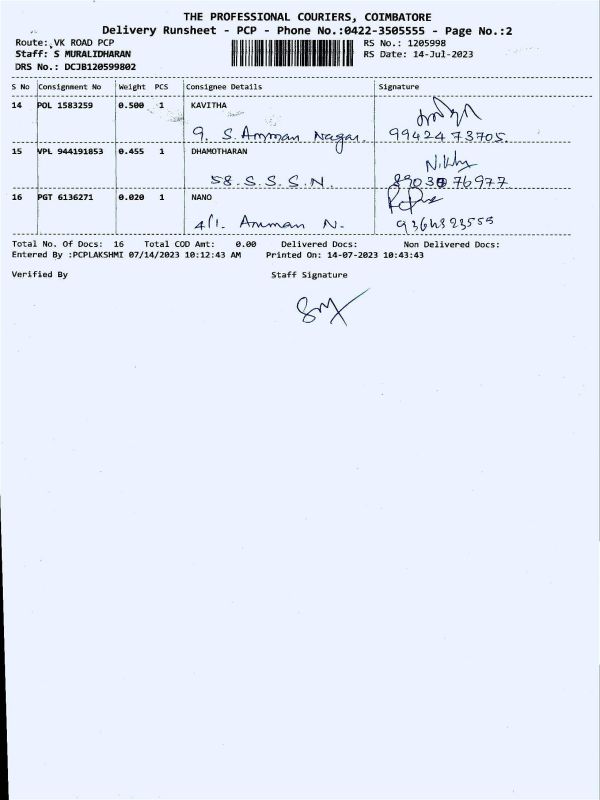 THE PROFESSIONAL COURIERS, COIMBATORE
Delivery Runsheet - PCP - Phone No.:0422-3505555 - Page No.:2
Route: VK ROAD PCP RS No.: 1205998
Staff: S MURALIDHARAN RS Date: 14-Jul-2023
DRS No.: DCJB120599802
S No Consignment No Weight PCS Consignee Details Signature
14 POL 1583259 0.500 1 KAVITHA
9. S. Amman Nagar. 99424 73705.
15 VPL 944191853 0.455 1 DHAMOTHARAN
58. S. S. S. N. 76977
16 PGT 6136271 0.020 1 NANO
4/1. Amman N. 9364323555
Total No. Of Docs: 16 Total COD Amt: 0.00 Delivered Docs: Non Delivered Docs:
Entered By :PCPLAKSHMI 07/14/2023 10:12:43 AM Printed On: 14-07-2023 10:43:43
Verified By Staff Signature